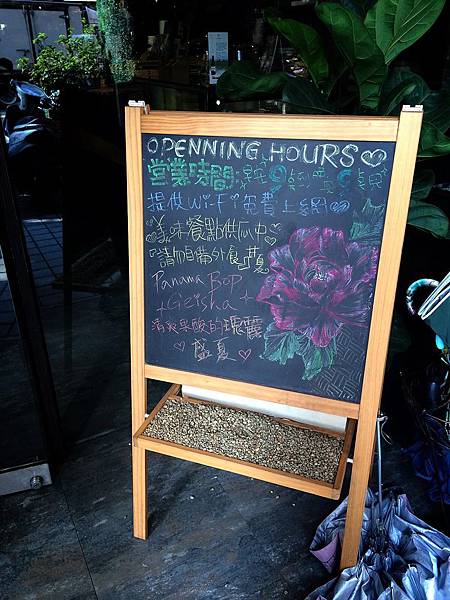 OPENNING HOURS
營業時間:晨9到晚9
提供Wi-Fi免費上網
美味餐點供應中
請勿自備外食
Panama BOP
Geisha
清爽果酸的瑰麗
盛夏